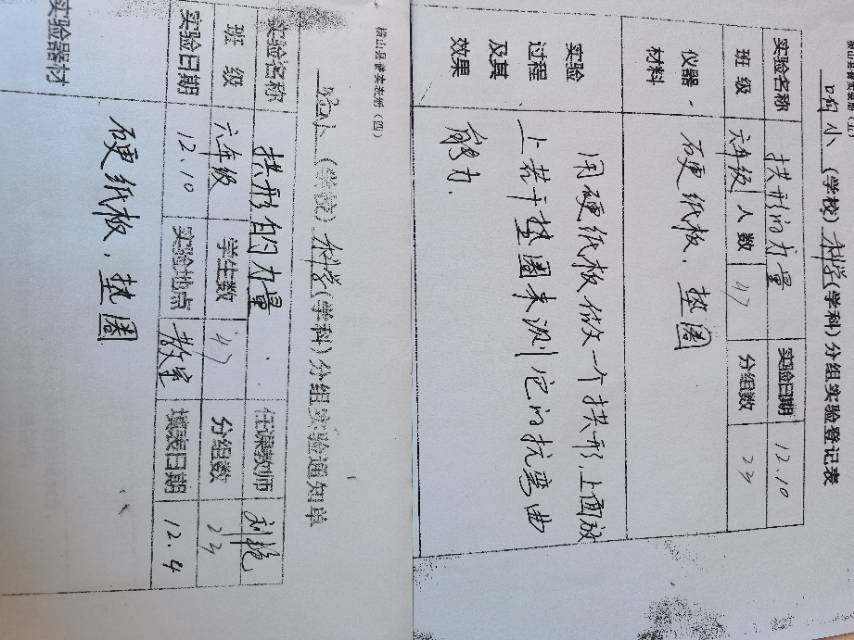 实验名称 拱形的力量 实验日期 12.10
班级 六年级 人数 47 分组数 23
仪器材料 硬纸板、垫圈
实验过程及其效果
用硬纸板做一个拱形,上面放
上若干垫圈来测它的抗弯曲
能力.
小 (学校) 科学 (学科) 分组实验登记表
(学校) 科学 (学科) 分组实验通知单
实验名称 拱形的力量 任课教师 刘艳
班级 六年级 学生数 47 分组数 23
实验日期 12.10 实验地点 教室 填表日期 12.4
实验器材 硬纸板、垫圈